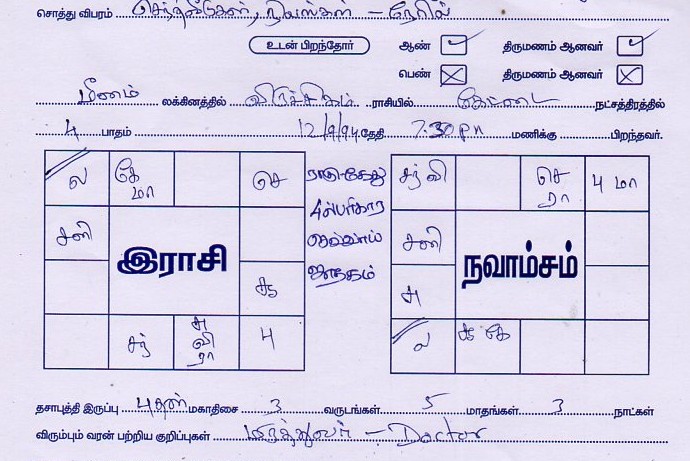 சொத்து விபரம் சொந்தவீடுகள், நிலங்கள் – நேரில்
உடன் பிறந்தோர் ஆண் ✓ திருமணம் ஆனவர் ✓
பெண் X திருமணம் ஆனவர் X
மீனம் லக்கினத்தில் விருச்சிகம் ராசியில் கேட்டை நட்சத்திரத்தில்
4 பாதம் 12/9/94 தேதி 7.30 PM மணிக்கு பிறந்தவர்.
ல கே மா செ
சனி
இராசி
சூ
சந் சு வி ரா 4
ராகு-கேது
பரிகார
செவ்வாய்
ஜாதகம்
சந் வி செ ரா 4 மா
சனி
நவாம்சம்
சு
ல கே
தசாபுத்தி இருப்பு புதன் மகாதிசை 3 வருடங்கள் 5 மாதங்கள் 3 நாட்கள்
விரும்பும் வரன் பற்றிய குறிப்புகள் மருத்துவர் – Doctor